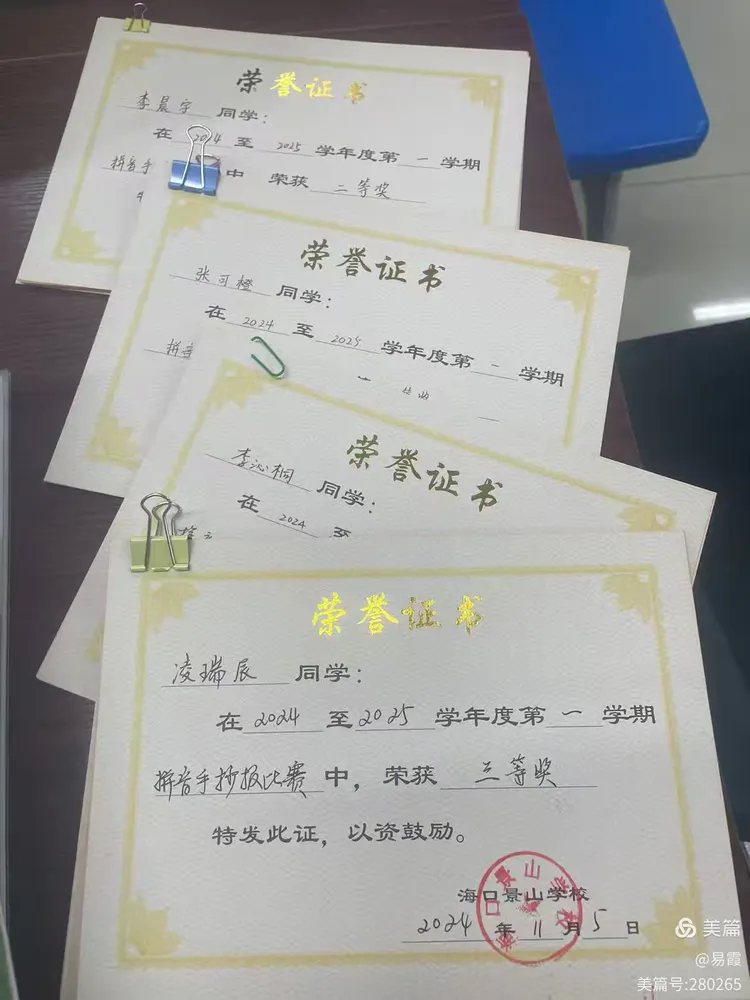 荣誉证书
李晨宇 同学：
在 2024 至 2025 学年度第 一 学期
拼音手 中 荣获 二等奖
荣誉证书
张可橙 同学：
在 2024 至 2025 学年度第 一 学期
拼音
荣誉证书
李沁桐 同学：
在 2024 至
荣誉证书
凌瑞辰 同学：
在 2024 至 2025 学年度第 一 学期
拼音手抄报比赛 中，荣获 三等奖
特发此证，以资鼓励。
海口景山学校
2024 年 11 月 5 日
海口景山学校
美篇
@易霞
美篇号:280265